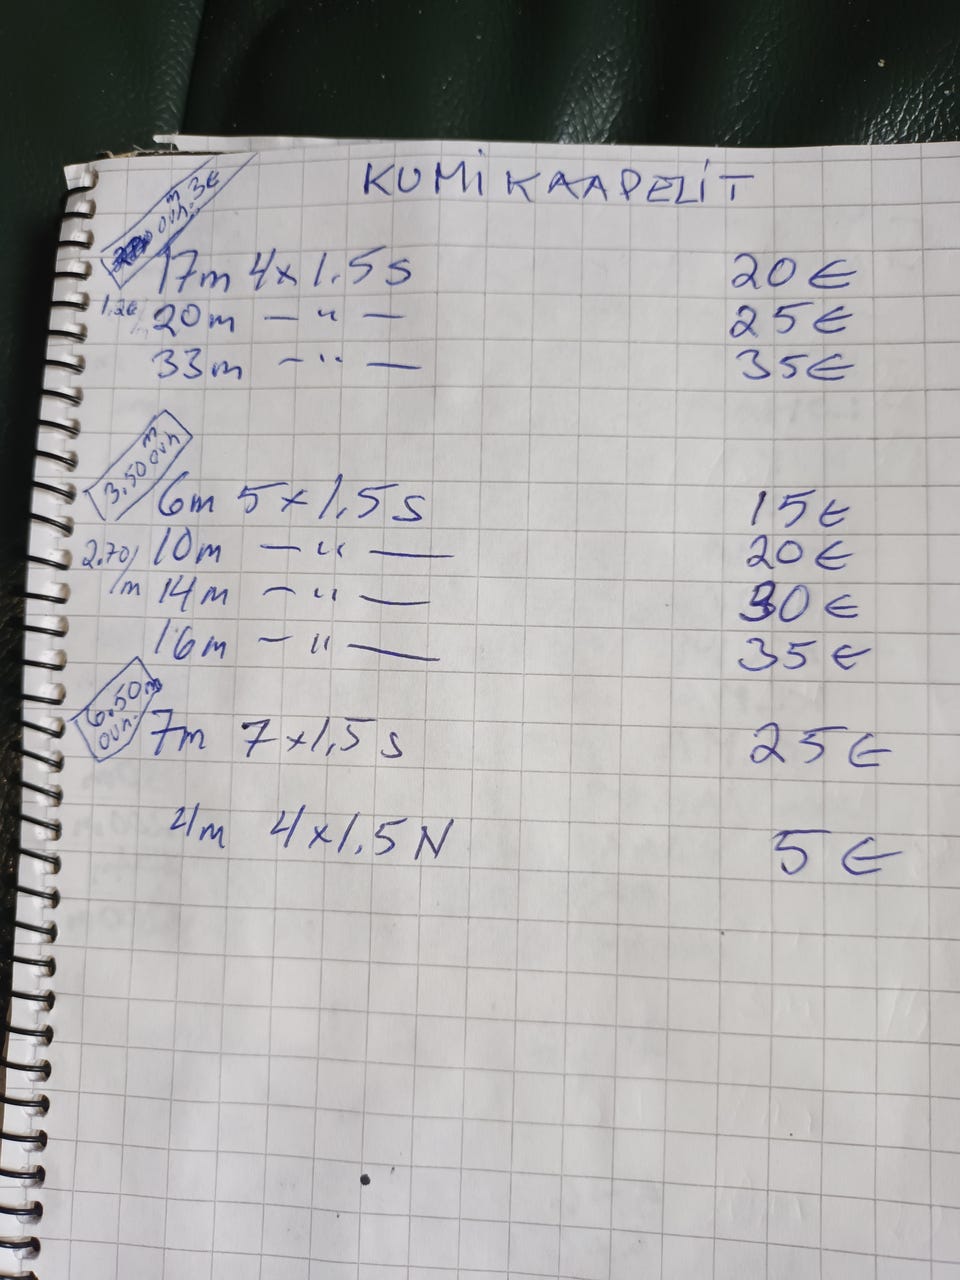 KUMIKAAPELIT
m
OVH. 3€
17m 4x1.5S 20€
1.2€/m
20m — " — 25€
33m — " — 35€
m
3.50 OVH
6m 5x1.5S 15€
2.70/m
10m — " — 20€
14m — " — 30€
16m — " — 35€
6.50m
OVH.
7m 7x1,5S 25€
4m 4x1.5N 5€